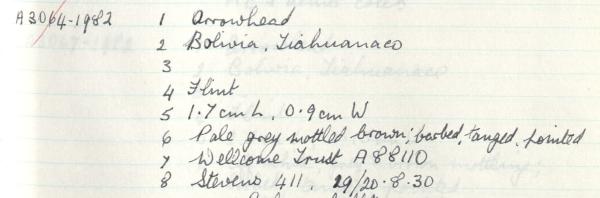 A3064-1982 1 Arrowhead
2 Bolivia, Tiahuanaco
3
4 Flint
5 1.7cm L, 0.9cm W
6 Pale grey mottled brown; barbed, tanged, pointed
7 Wellcome Trust A88110
8 Stevens 411. 29/20.8.30